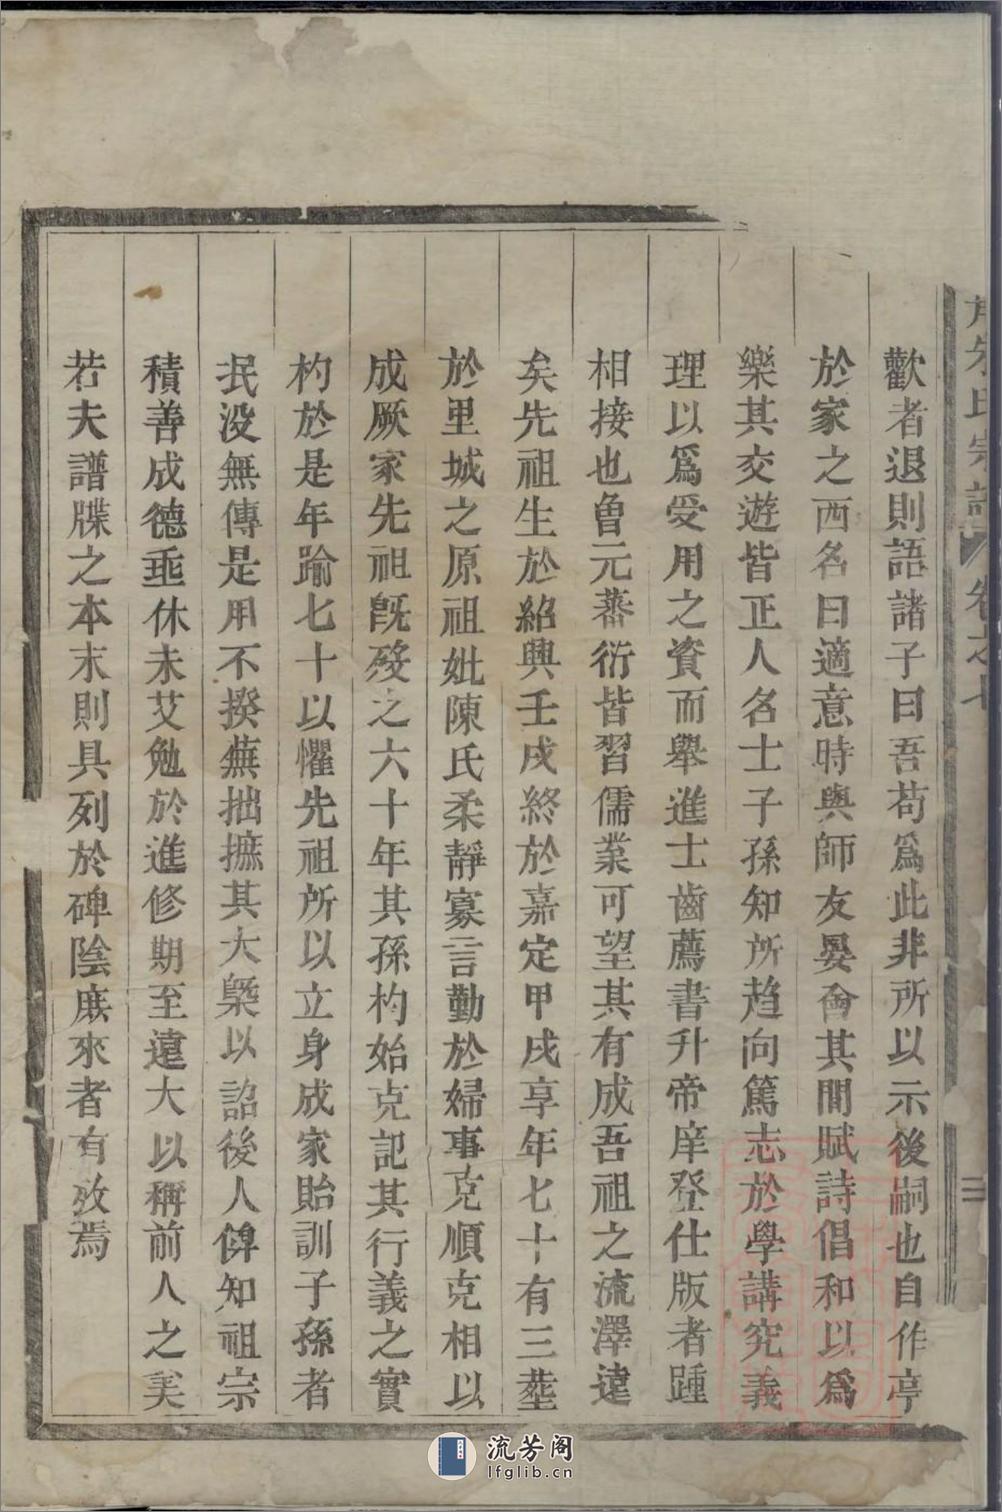 朱氏宗譜 卷之七 二
歡者退則語諸子曰吾苟爲此非所以示後嗣也自作亭
於家之西名曰適意時與師友晏會其閒賦詩倡和以爲
樂其交遊皆正人名士子孫知所趋向篤志於學講究義
理以爲受用之資而舉進士齒薦書升帝庠登仕版者踵
相接也曾元蕃衍皆習儒業可望其有成吾祖之流澤遠
矣先祖生於紹興壬戌終於嘉定甲戌享年七十有三塟
於里城之原祖妣陳氏柔靜寡言勤於婦事克順克相以
成厥家先祖旣歿之六十年其孫杓始克記其行義之實
杓於是年踰七十以懼先祖所以立身成家貽訓子孫者
泯没無傳是用不揆蕪拙摭其大槩以詔後人俾知祖宗
積善成德垂休未艾勉於進修期至遠大以稱前人之美
若夫譜牒之本末則具列於碑陰庶來者有攷焉
流芳阁
lfglib.cn